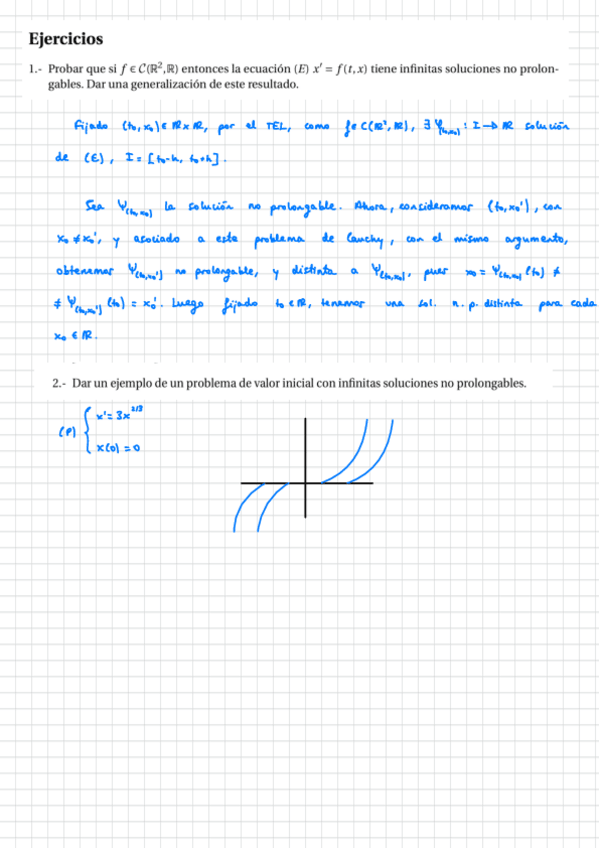 Ejercicios
1.- Probar que si f ∈ C(ℝ²,ℝ) entonces la ecuación (E) x' = f(t,x) tiene infinitas soluciones no prolon-
gables. Dar una generalización de este resultado.
Fijado (t₀,x₀) ∈ ℝ×ℝ, por el TEL, como f∈C(ℝ²,ℝ), ∃ φ_(t₀,x₀) : I → ℝ solución
de (E), I = [t₀-h, t₀+h].
Sea Ψ_(t₀,x₀) la solución no prolongable. Ahora, consideramos (t₀,x₀'), con
x₀ ≠ x₀', y asociado a este problema de Cauchy, con el mismo argumento,
obtenemos Ψ_(t₀,x₀') no prolongable, y distinta a Ψ_(t₀,x₀), pues x₀ = Ψ_(t₀,x₀) (t₀) ≠
≠ Ψ_(t₀,x₀') (t₀) = x₀'. Luego fijado t₀ ∈ ℝ, tenemos una sol. n. p. distinta para cada
x₀ ∈ ℝ.
2.- Dar un ejemplo de un problema de valor inicial con infinitas soluciones no prolongables.
(P) { x' = 3x^2/3
x(0) = 0